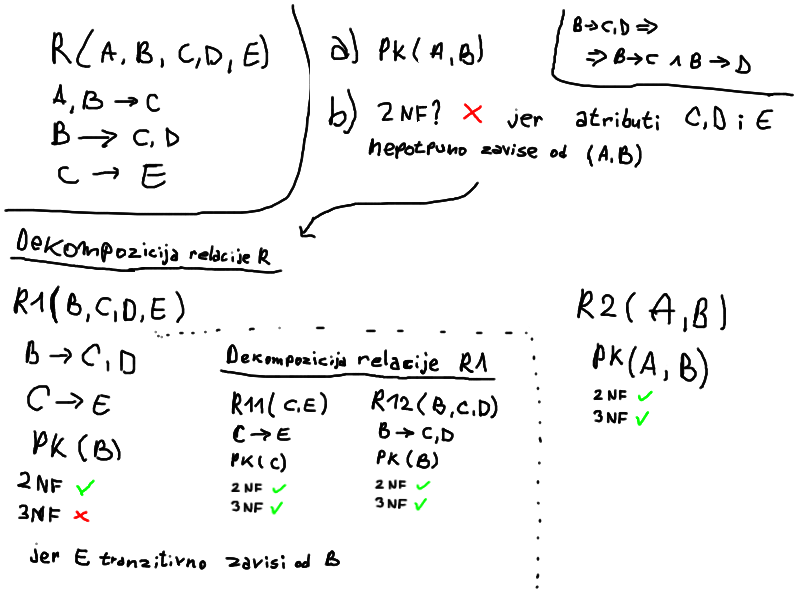 R(A, B, C, D, E)
A, B → C
B → C, D
C → E
a) PK(A,B)
b) 2NF? ✗ jer atributi C, D i E
nepotpuno zavise od (A,B)
B→C,D ⇒
⇒ B→C ∧ B→D
Dekompozicija relacije R
R1(B,C,D,E)
B → C, D
C → E
PK(B)
2NF ✓
3NF ✗
jer E tranzitivno zavisi od B
Dekompozicija relacije R1
R11(C,E)
C → E
PK(C)
2NF ✓
3NF ✓
R12(B,C,D)
B → C,D
PK(B)
2NF ✓
3NF ✓
R2(A,B)
PK(A,B)
2NF ✓
3NF ✓